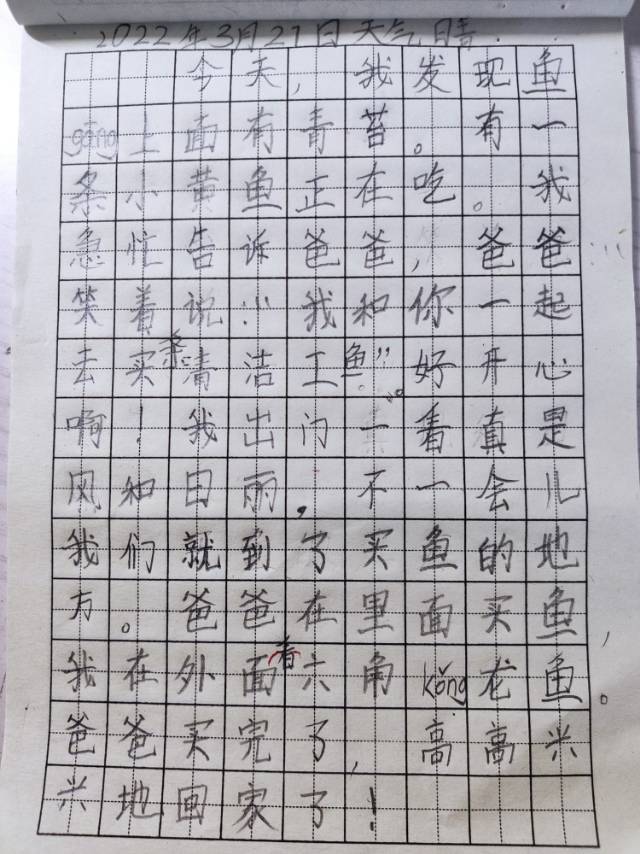 2022年3月27日天气晴.
今天,我发现鱼
gāng上面有青苔。有一
条小黄鱼正在吃。我
急忙告诉爸爸,爸爸
笑着说:“我和你一起
去买条清洁工鱼。”好开心
啊!我出门一看真是
风和日丽,不一会儿
我们就到了买鱼的地
方。爸爸在里面买鱼,
我在外面看六角kǒng龙鱼。
爸爸买完了,高高兴
兴地回家了!